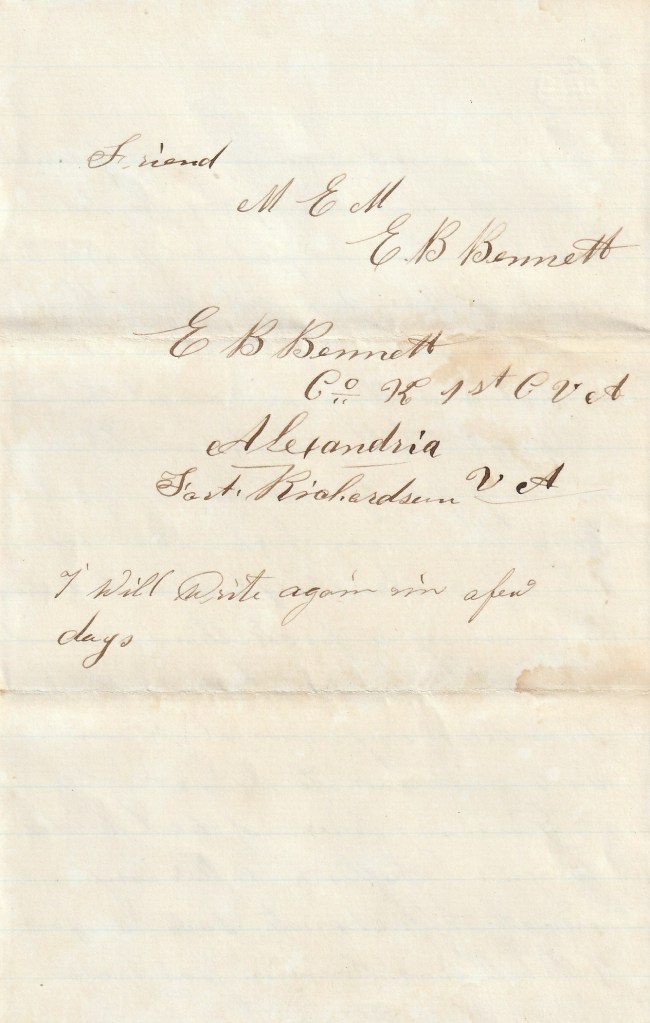 Friend
M E M
E. B Bennett
E B Bennett
Co K 1st C V A
Alexandria
Fort. Richardson V A
I Will Write again in afew
days